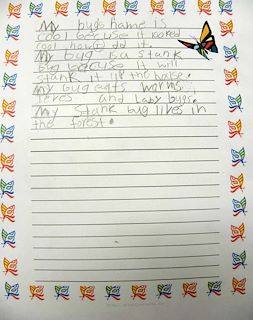 My bugs name is
cool becuse it
cool how it did it.
My bug is a stank
bug becuse it will
stank it up the house.
My bug eats worms,
leves and lady bugs.
My stank bug lives in
the forest.